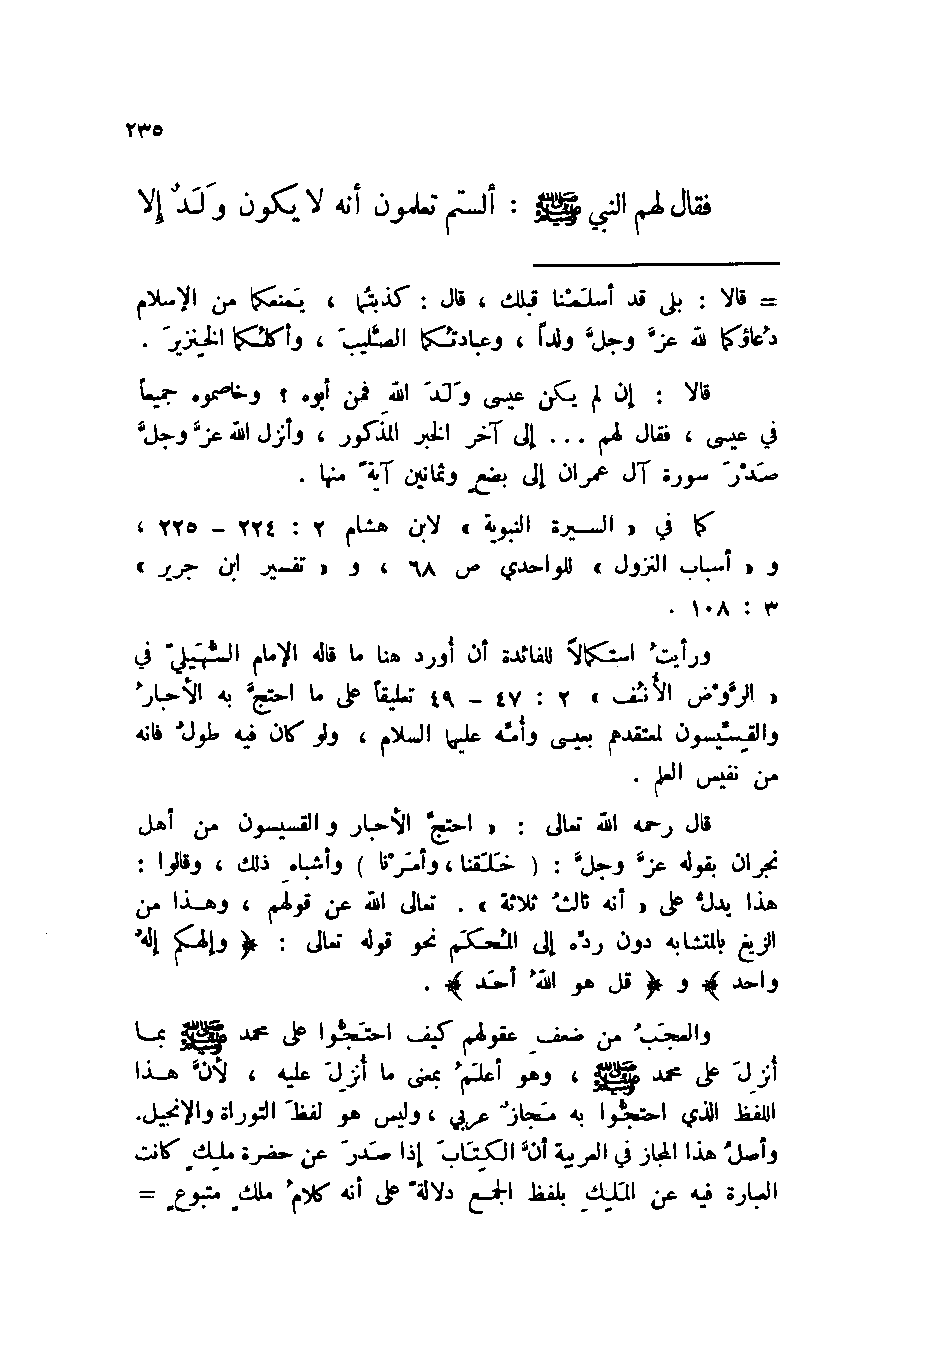 ٢٣٥
فقال لهم النبي ﷺ : ألستم تعلمون أنه لا يكون وَلَدٌ إلا
= قالا : بلى قد أسلَمْنا قبلك ، قال : كذبتُما ، يَمنعكما من الإسلام
دُعاؤكما لله عزَّ وجلَّ ولداً ، وعبادتُكما الصَّليبَ ، وأكلُكما الخِنزيرَ .
قالا : إن لم يكن عيسى وَلَدَ اللهِ فمن أبوه ؟ وخاصموه جميعاً
في عيسى ، فقال لهم ... إلى آخر الخبر المذكور ، وأنزل الله عزَّ وجلَّ
صَدْرَ سورة آل عمران إلى بضعٍ وثمانين آيةً منها .
كما في « السيرة النبوية » لابن هشام ٢ : ٢٢٤ – ٢٢٥ ،
و « أسباب النزول » للواحدي ص ٦٨ ، و « تفسير ابن جرير »
٣ : ١٠٨ .
ورأيتُ استكمالاً للفائدة أن أُورد هنا ما قاله الإمام السُّهَيليّ في
« الرَّوْض الأُنُف » ٢ : ٤٧ – ٤٩ تعليقاً على ما احتجَّ به الأحبارُ
والقسِّيسون لمعتقدهم بعيسى وأمِّه عليهما السلام ، ولو كان فيه طولٌ فانه
من نفيس العلم .
قال رحمه الله تعالى : « احتجَّ الأحبار والقسيسون من أهل
نجران بقوله عزَّ وجلَّ : ( خَلَقنا ، وأمَرْنا ) وأشباهِ ذلك ، وقالوا :
هذا يدلُّ على « أنه ثالثُ ثلاثة » . تعالى الله عن قولهم ، وهذا من
الزيغ بالمتشابه دون ردِّه إلى المُحكَم نحو قوله تعالى : ﴿ وإلهكم إلهٌ
واحد ﴾ و ﴿ قل هو اللهُ أحَد ﴾ .
والعجَبُ من ضعفِ عقولهم كيف احتَجُّوا على محمد ﷺ بما
أُنزِلَ على محمد ﷺ ، وهو أعلَمُ بمعنى ما أُنزِلَ عليه ، لأنَّ هذا
اللفظ الذي احتجُّوا به مَجازٌ عربي ، وليس هو لفظَ التوراة والإنجيل.
وأصلُ هذا المجاز في العربية أنَّ الكِتابَ إذا صَدَرَ عن حضرة ملِكٍ كانت
العبارة فيه عن المَلِكِ بلفظ الجمع دلالةً على أنه كلامُ ملك متبوعٍ =